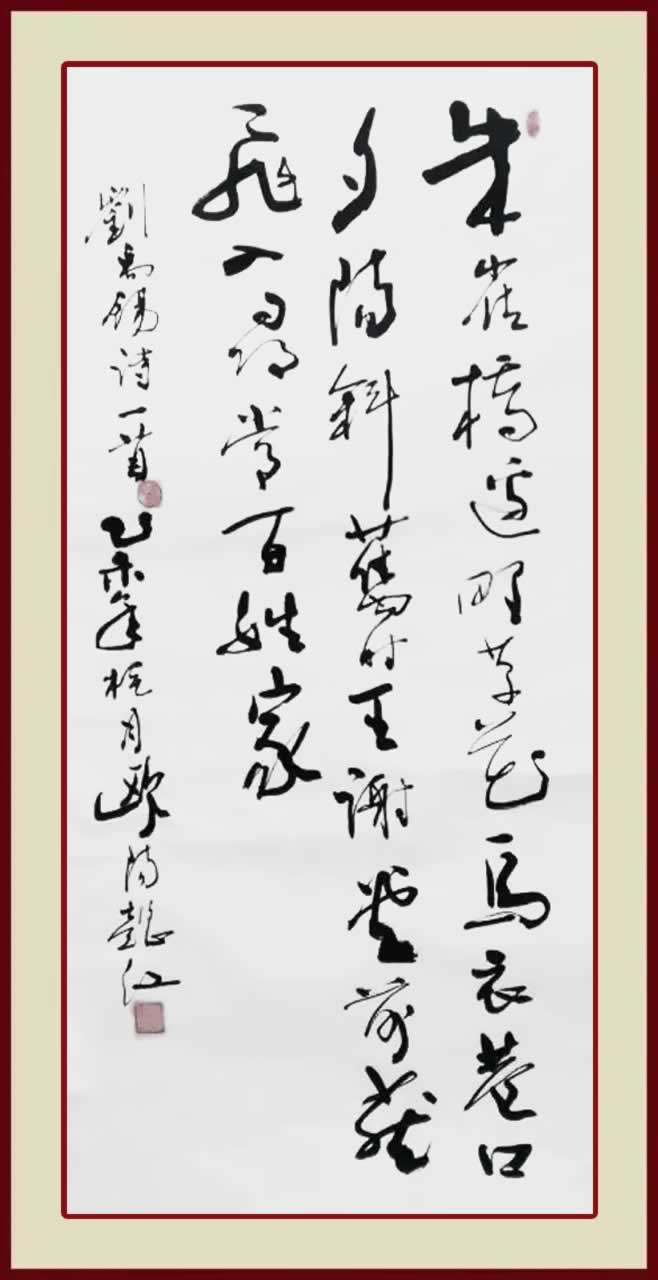 朱雀橋邊野草花烏衣巷口
夕陽斜舊时王謝堂前燕
飛入尋常百姓家
劉禹錫诗一首乙未年桃月歐陽懿红